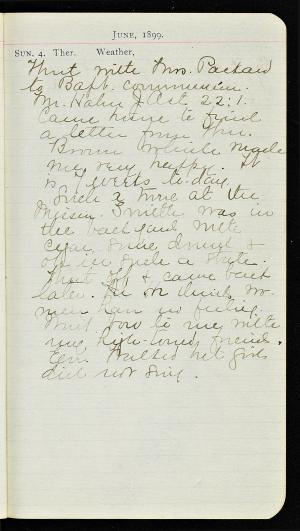 June, 1899.
Sun. 4. Ther. Weather,
Went with Mrs. Packard
to Bapt. communion.
Mr. Hahn Act. 22:1.
Came home to find
a letter from Mr.
Brown which made
me very happy. It
is 7 weeks to-day.
Such a time at the
Mission. Smith was in
the back yard with
cigar, some drunk &
off in such a state.
Went off & came back
later. He on think wo-
men have no feeling.
Must bow to me, with
my high-toned friend.
Em. Walked het girls
did not sing.